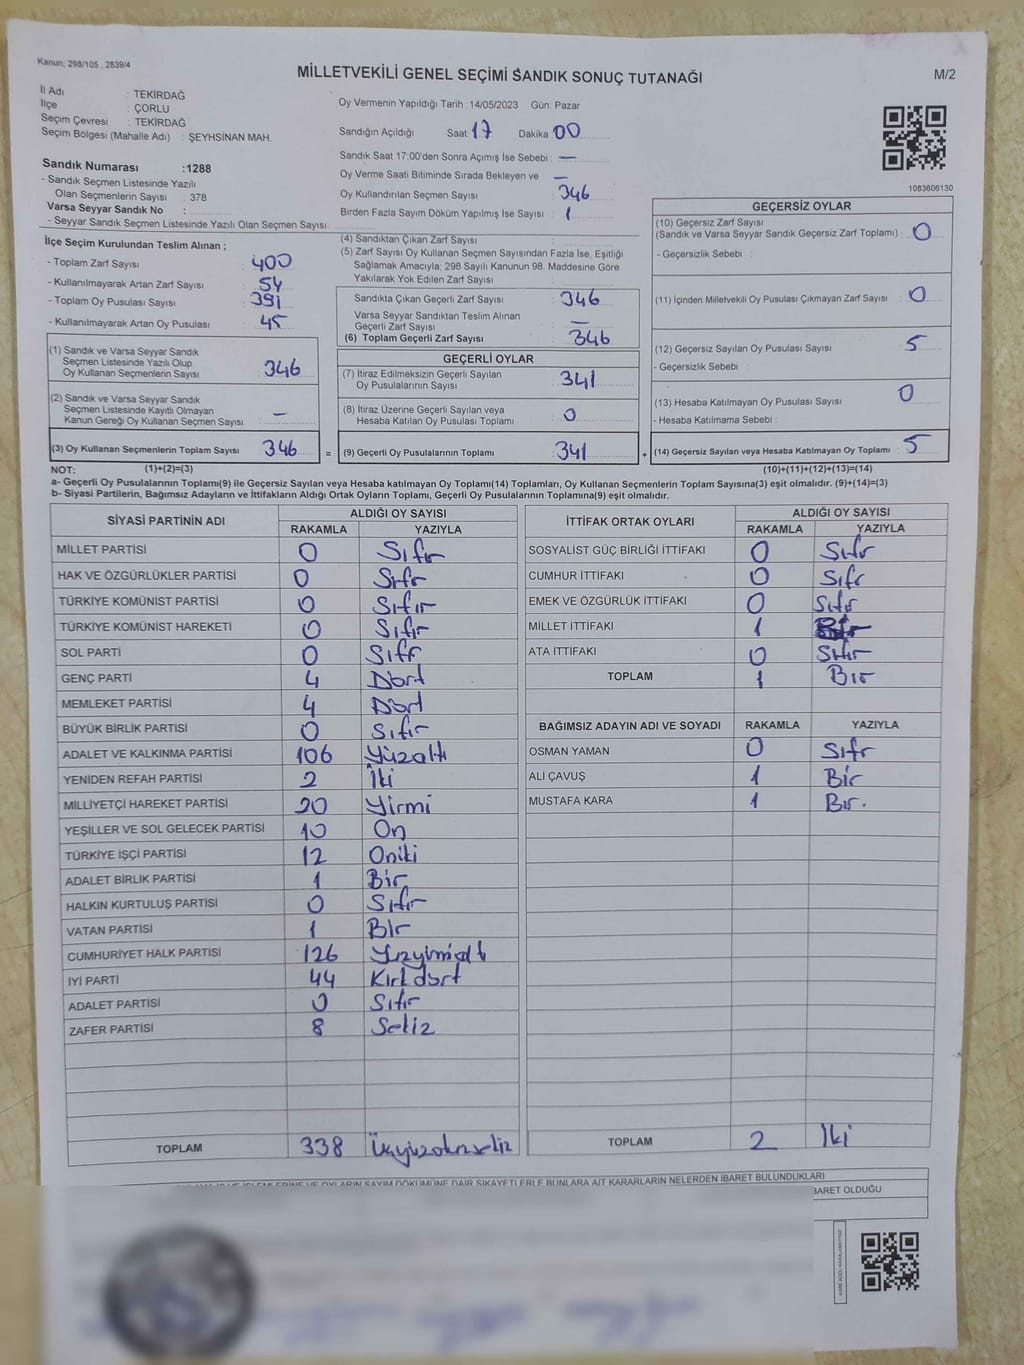 Kanun; 298/105 , 2839/4
MİLLETVEKİLİ GENEL SEÇİMİ SANDIK SONUÇ TUTANAĞI
M/2
İl Adı : TEKİRDAĞ
İlçe : ÇORLU
Seçim Çevresi : TEKİRDAĞ
Seçim Bölgesi (Mahalle Adı) : ŞEYHSİNAN MAH.
Sandık Numarası :1288
- Sandık Seçmen Listesinde Yazılı
Olan Seçmenlerin Sayısı : 378
Varsa Seyyar Sandık No :
- Seyyar Sandık Seçmen Listesinde Yazılı Olan Seçmen Sayısı:
Oy Vermenin Yapıldığı Tarih :14/05/2023 Gün: Pazar
Sandığın Açıldığı Saat: 17 Dakika 00
Sandık Saat 17:00'den Sonra Açımış İse Sebebi : —
Oy Verme Saati Bitiminde Sırada Bekleyen ve —
Oy Kullandırılan Seçmen Sayısı 346
Birden Fazla Sayım Döküm Yapılmış İse Sayısı 1
1083606130
İlçe Seçim Kurulundan Teslim Alınan ;
- Toplam Zarf Sayısı 400
- Kullanılmayarak Artan Zarf Sayısı 54
- Toplam Oy Pusulası Sayısı 391
- Kullanılmayarak Artan Oy Pusulası 45
(1) Sandık ve Varsa Seyyar Sandık
Seçmen Listesinde Yazılı Olup
Oy Kullanan Seçmenlerin Sayısı 346
(2) Sandık ve Varsa Seyyar Sandık
Seçmen Listesinde Kayıtlı Olmayan
Kanun Gereği Oy Kullanan Seçmen Sayısı —
(3) Oy Kullanan Seçmenlerin Toplam Sayısı 346 =
(4) Sandıktan Çıkan Zarf Sayısı
(5) Zarf Sayısı Oy Kullanan Seçmen Sayısından Fazla İse, Eşitliği
Sağlamak Amacıyla; 298 Sayılı Kanunun 98. Maddesine Göre
Yakılarak Yok Edilen Zarf Sayısı
Sandıkta Çıkan Geçerli Zarf Sayısı 346
Varsa Seyyar Sandıktan Teslim Alınan
Geçerli Zarf Sayısı —
(6) Toplam Geçerli Zarf Sayısı 346
GEÇERLİ OYLAR
(7) İtiraz Edilmeksizin Geçerli Sayılan
Oy Pusulalarının Sayısı 341
(8) İtiraz Üzerine Geçerli Sayılan veya
Hesaba Katılan Oy Pusulası Toplamı 0
(9) Geçerli Oy Pusulalarının Toplamı 341 +
GEÇERSİZ OYLAR
(10) Geçersiz Zarf Sayısı
(Sandık ve Varsa Seyyar Sandık Geçersiz Zarf Toplamı) 0
- Geçersizlik Sebebi :
(11) İçinden Milletvekili Oy Pusulası Çıkmayan Zarf Sayısı 0
(12) Geçersiz Sayılan Oy Pusulası Sayısı 5
- Geçersizlik Sebebi :
(13) Hesaba Katılmayan Oy Pusulası Sayısı 0
- Hesaba Katılmama Sebebi :
(14) Geçersiz Sayılan veya Hesaba Katılmayan Oy Toplamı 5
NOT: (1)+(2)=(3) (10)+(11)+(12)+(13)=(14)
a- Geçerli Oy Pusulalarının Toplamı(9) ile Geçersiz Sayılan veya Hesaba katılmayan Oy Toplamı(14) Toplamları, Oy Kullanan Seçmenlerin Toplam Sayısına(3) eşit olmalıdır. (9)+(14)=(3)
b- Siyasi Partilerin, Bağımsız Adayların ve İttifakların Aldığı Ortak Oyların Toplamı, Geçerli Oy Pusulalarının Toplamına(9) eşit olmalıdır.
SİYASİ PARTİNİN ADI ALDIĞI OY SAYISI
RAKAMLA YAZIYLA
MİLLET PARTİSİ 0 Sıfır
HAK VE ÖZGÜRLÜKLER PARTİSİ 0 Sıfır
TÜRKİYE KOMÜNİST PARTİSİ 0 Sıfır
TÜRKİYE KOMÜNİST HAREKETİ 0 Sıfır
SOL PARTİ 0 Sıfır
GENÇ PARTİ 4 Dört
MEMLEKET PARTİSİ 4 Dört
BÜYÜK BİRLİK PARTİSİ 0 Sıfır
ADALET VE KALKINMA PARTİSİ 106 Yüzaltı
YENİDEN REFAH PARTİSİ 2 İki
MİLLİYETÇİ HAREKET PARTİSİ 20 Yirmi
YEŞİLLER VE SOL GELECEK PARTİSİ 10 On
TÜRKİYE İŞÇİ PARTİSİ 12 Oniki
ADALET BİRLİK PARTİSİ 1 Bir
HALKIN KURTULUŞ PARTİSİ 0 Sıfır
VATAN PARTİSİ 1 Bir
CUMHURİYET HALK PARTİSİ 126 Yüzyirmialtı
İYİ PARTİ 44 Kırkdört
ADALET PARTİSİ 0 Sıfır
ZAFER PARTİSİ 8 Sekiz
TOPLAM 338 Üçyüzotuzsekiz
İTTİFAK ORTAK OYLARI ALDIĞI OY SAYISI
RAKAMLA YAZIYLA
SOSYALİST GÜÇ BİRLİĞİ İTTİFAKI 0 Sıfır
CUMHUR İTTİFAKI 0 Sıfır
EMEK VE ÖZGÜRLÜK İTTİFAKI 0 Sıfır
MİLLET İTTİFAKI 1 Bir
ATA İTTİFAKI 0 Sıfır
TOPLAM 1 Bir
BAĞIMSIZ ADAYIN ADI VE SOYADI RAKAMLA YAZIYLA
OSMAN YAMAN 0 Sıfır
ALİ ÇAVUŞ 1 Bir
MUSTAFA KARA 1 Bir.
TOPLAM 2 İki
OYLARIN SAYIM DÖKÜMÜNE DAİR ŞİKAYETLERLE BUNLARA AİT KARARLARIN NELERDEN İBARET BULUNDUKLARI
İBARET OLDUĞU